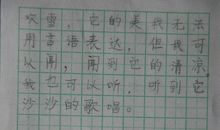 吹雪，它的美我无法
用言语表达，但我可
以闻，闻到它的清凉，
我也可以听，听到它
沙沙的歌唱。